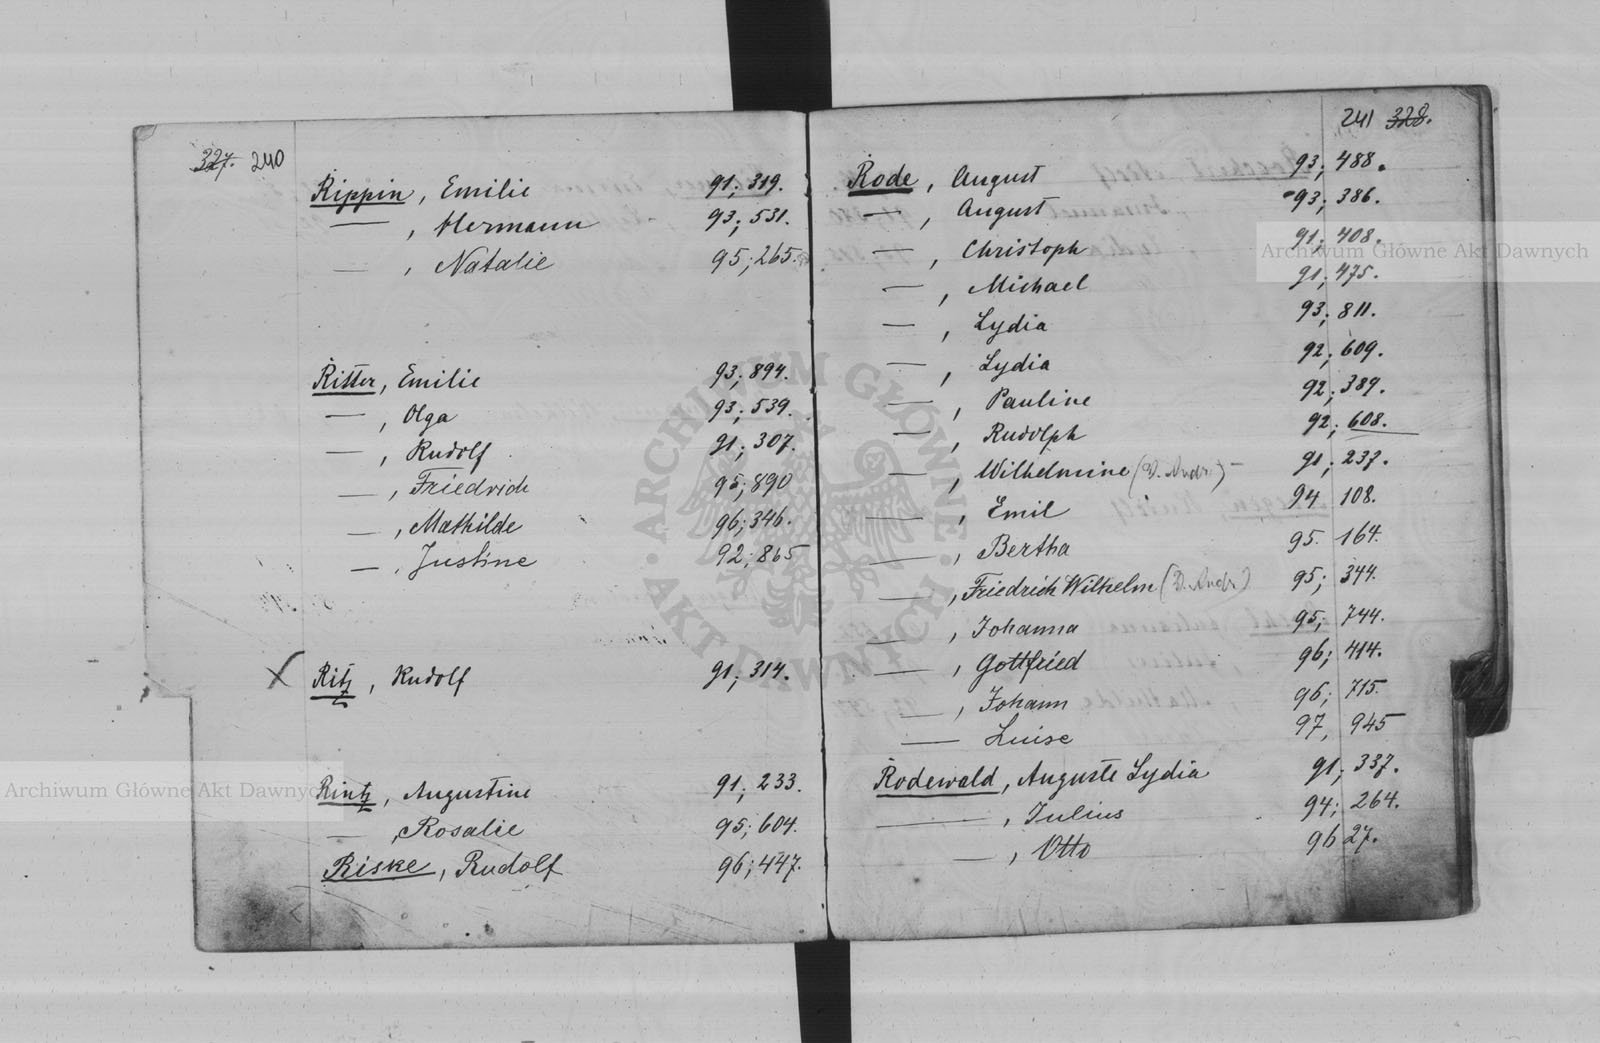 327. 240
Rippin, Emilie 91; 319.
— , Hermann 93; 531.
— , Natalie 95; 265.
Ritter, Emilie 93; 894.
— , Olga 93; 539.
— , Rudolf 91; 307.
— , Friedrich 95; 890
— , Mathilde 96; 346.
— , Justine 92; 865
Ritz, Rudolf 91; 314.
Rintz, Augustine 91; 233.
— , Rosalie 95; 604.
Riske, Rudolf 96; 447.
241 328.
Rode, August 93; 488.
— , August 93; 386.
— , Christoph 91; 408.
— , Michael 91; 475.
— , Lydia 93; 811.
— , Lydia 92; 609.
— , Pauline 92; 389.
— , Rudolph 92; 608.
— , Wilhelmine 91; 237.
— , Emil 94 108.
— , Bertha 95. 164.
— , Friedrich Wilhelm 95; 344.
— , Johanna 95; 744.
— , Gottfried 96; 414.
— , Johann 96; 715.
— Luise 97, 945
Rodewald, Auguste Lydia 91; 337.
— , Julius 94; 264.
— , Otto 96 27.
Archiwum Główne Akt Dawnych
Archiwum Główne Akt Dawnych
ARCHIWUM GŁÓWNE AKT DAWNYCH